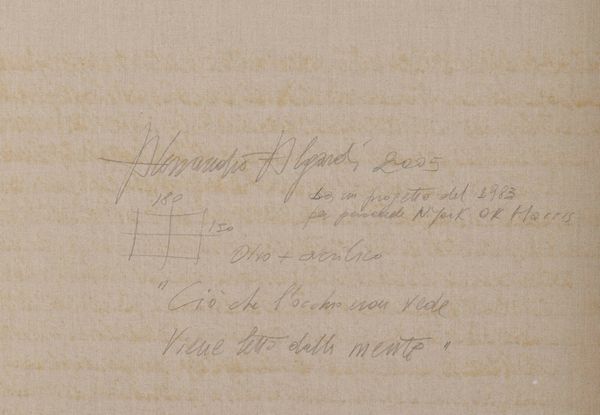 Alessandro Algardi 2005
da un progetto del 1983
per N. York OK Harris
180
150
Olio + acrilico
"Ciò che l'occhio non vede
Viene letto dalla mente"